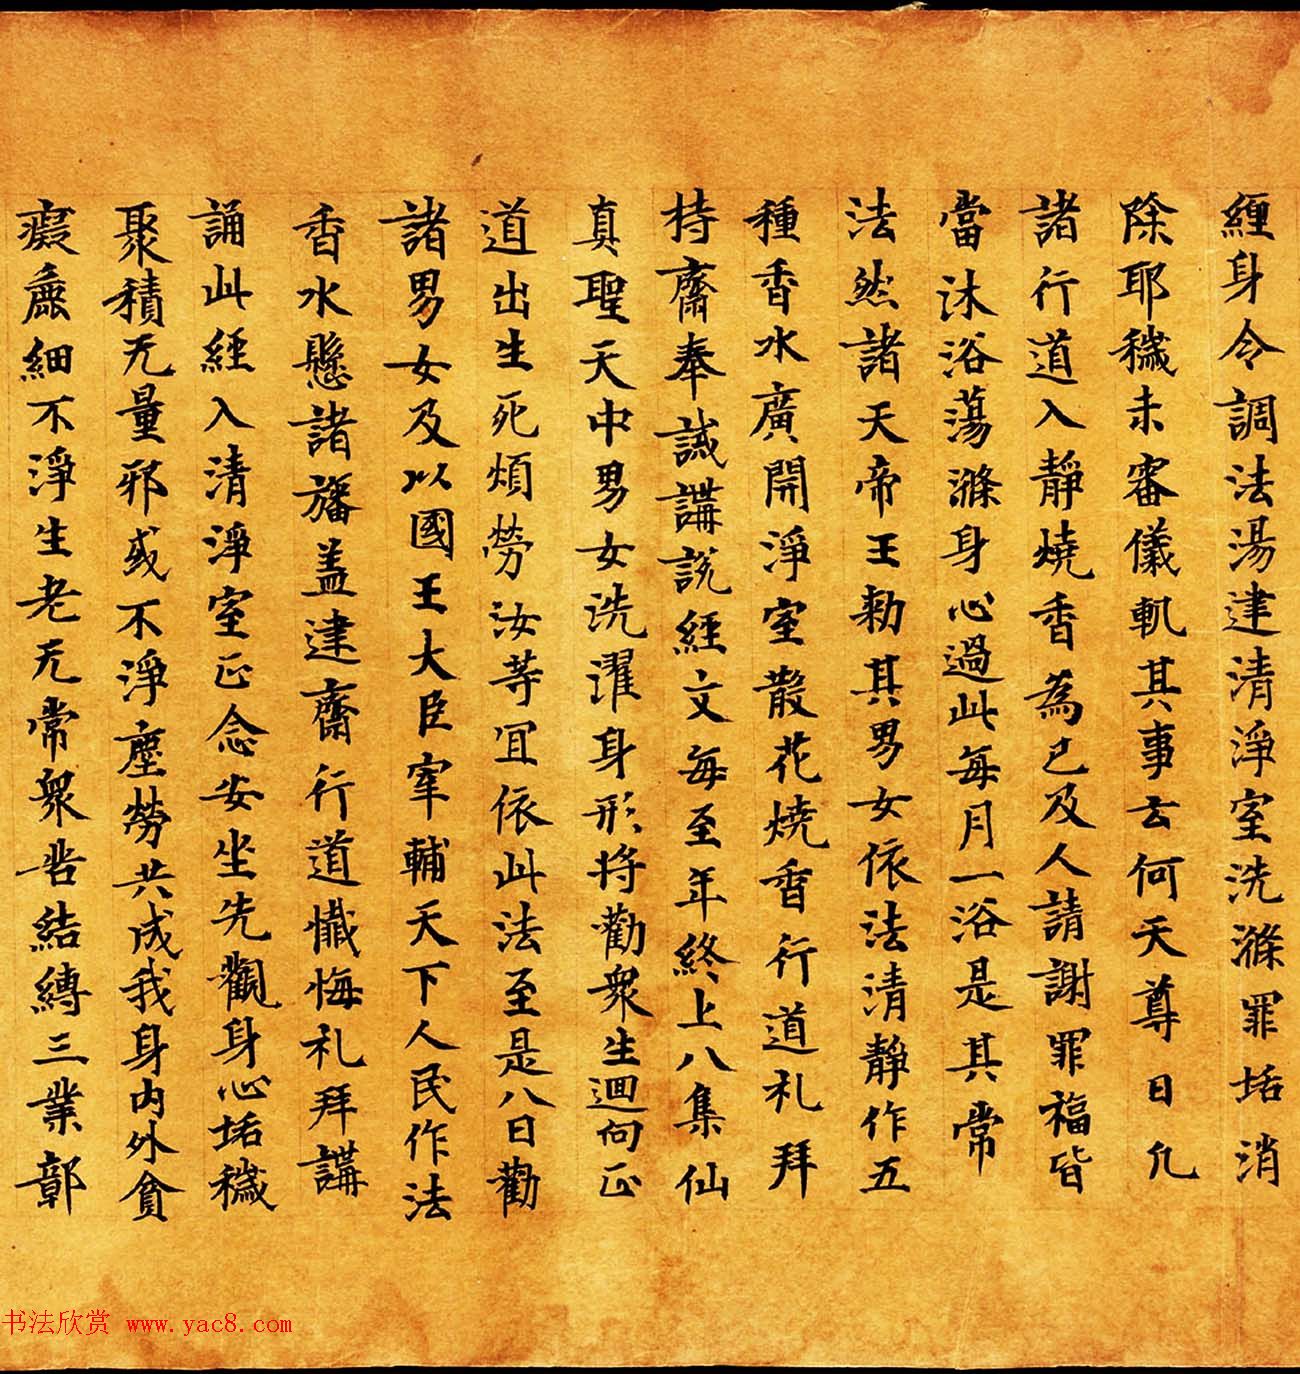 經身令調法湯建清淨室洗滌罪垢消
除耶穢未審儀軌其事云何天尊日凡
諸行道入靜燒香為已及人請謝罪福皆
當沐浴蕩滌身心過此每月一浴是其常
法然諸天帝王勑其男女依法清靜作五
種香水廣開淨室散花燒香行道礼拜
持齋奉誡講說經文每至年終上八集仙
真聖天中男女洗濯身形将勸衆生迴向正
道出生死煩勞汝等宜依此法至是八日勸
諸男女及以國王大臣宰輔天下人民作法
香水懸諸旛盖建齋行道懺悔礼拜講
誦此經入清淨室正念安坐先觀身心垢穢
聚積无量邪或不淨塵勞共成我身內外貪
癡麁細不淨生老无常衆苦結縛三業鄣
书法欣赏 www.yac8.com